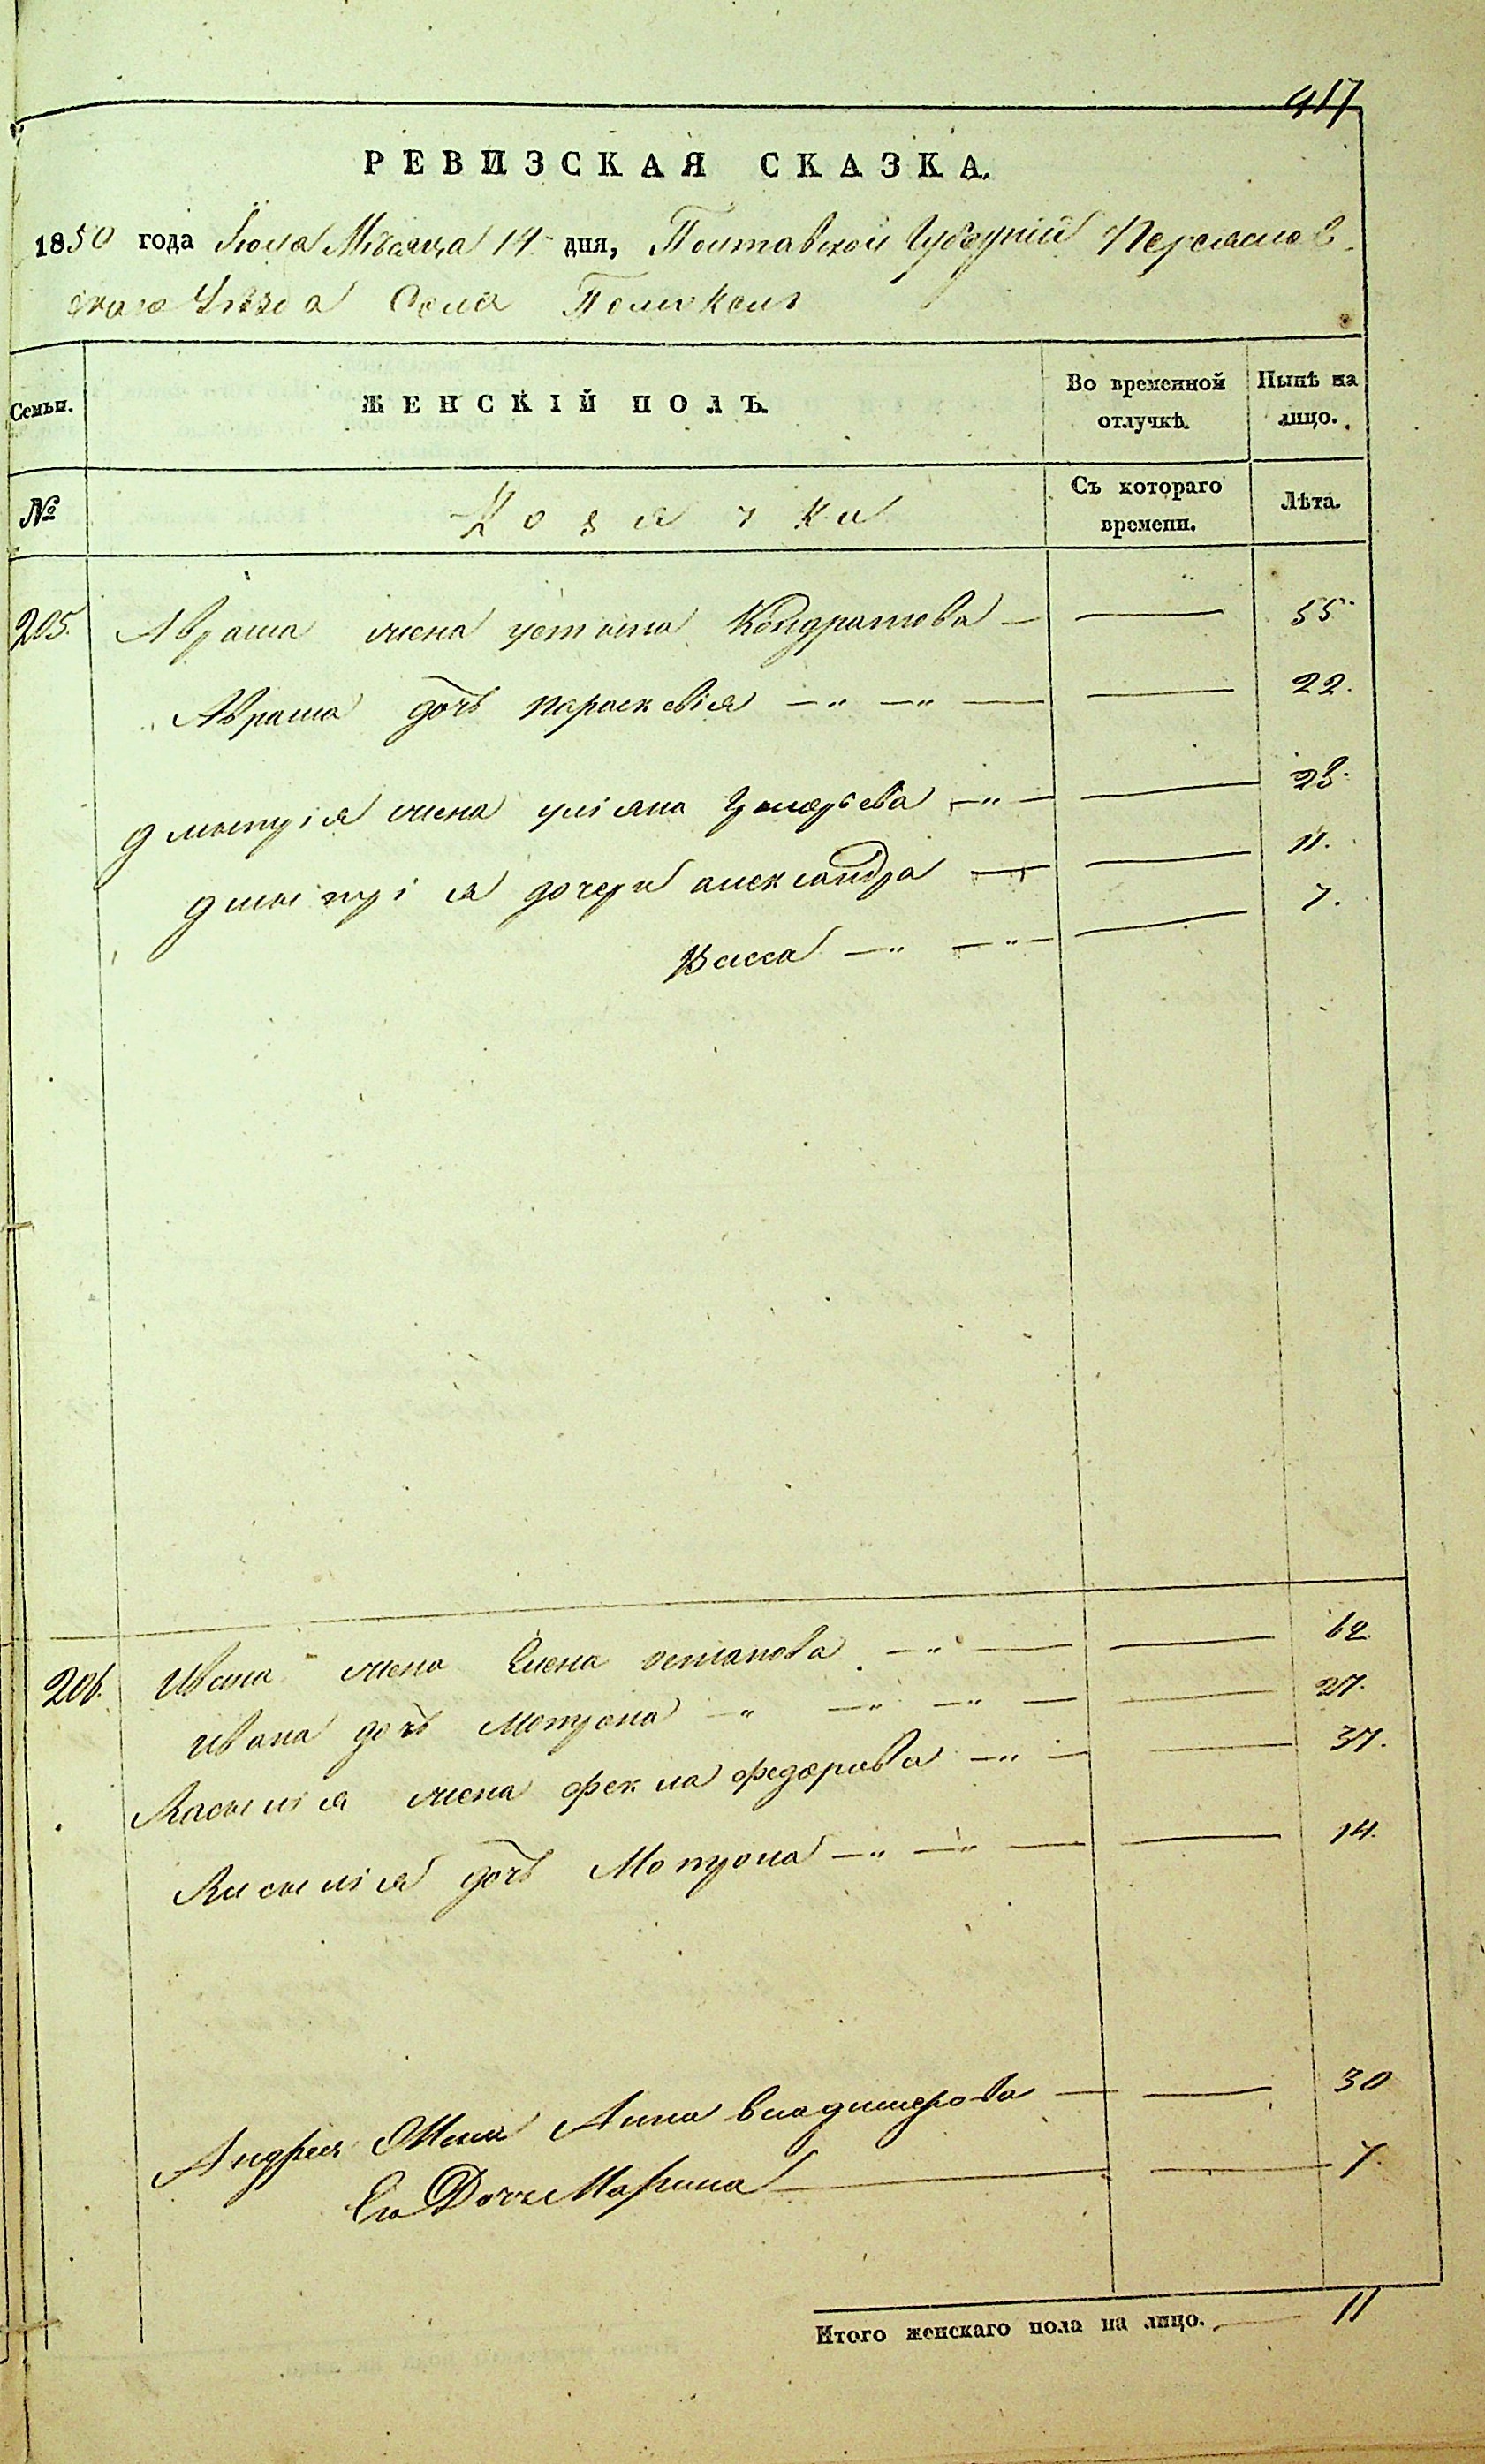 917
РЕВИЗСКАЯ СКАЗКА.
1850 года Июля Мѣсяца 14 дня, Полтавской Губерніи Переяслов-
скаго Уѣзда Села Помоклъ
Семьи. ЖЕНСКІЙ ПОЛЪ. Во временной отлучкѣ. Нынѣ на лицо.
№ Козачки Съ котораго времени. Лѣта.
205. Аврама жена Устина Кондратова — 55.
Аврама дочь Параскевія — 22.
Дмытрія жена Уліяна — 28.
Дмытрія дочери Александра — 11.
Васса — 7.
206. Ивана жена Елена Остапова — 62.
Ивана дочь Мотрона — 27.
Васылія жена Фекла Федорова — 37.
Васылія дочь Мотрона — 14.
Андрея Жена Анна Владимерова — 30
Его Дочь Марина — 7.
Итого женскаго пола на лицо. — 11